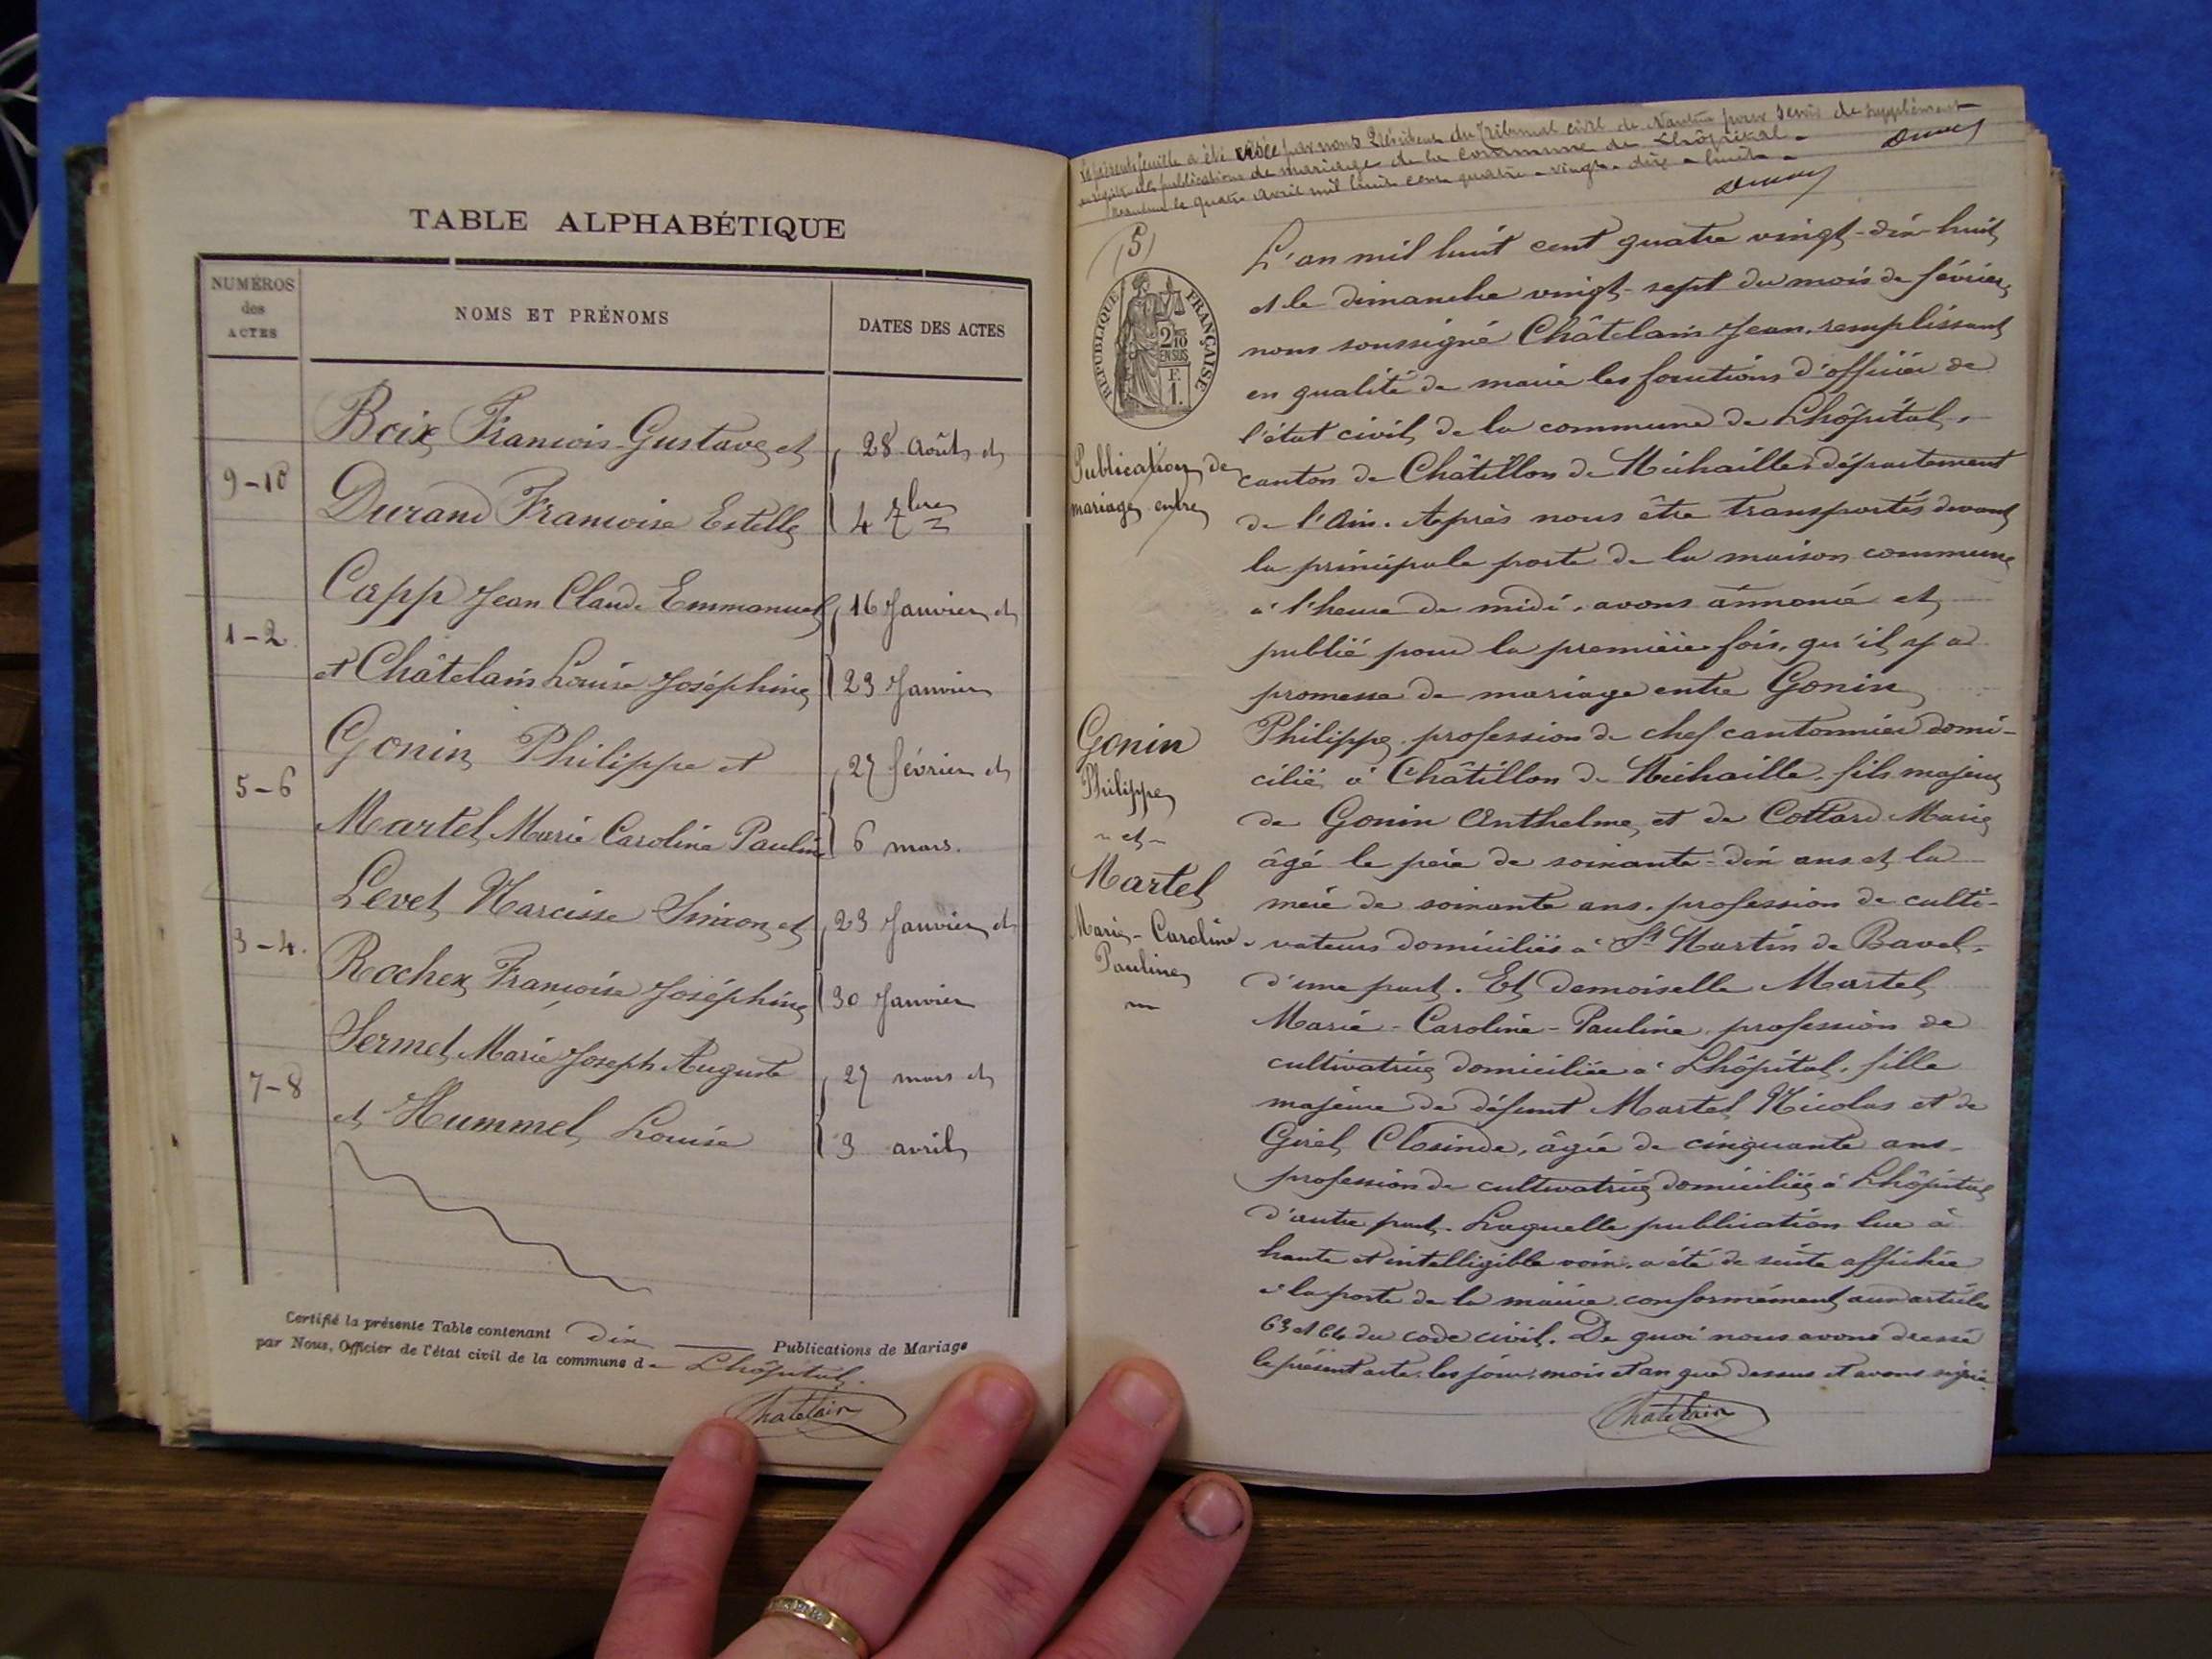 TABLE ALPHABÉTIQUE
NUMÉROS
des
ACTES
NOMS ET PRÉNOMS
DATES DES ACTES
Boix François Gustave et
28 Août et
9-10
Durand Francoise Estelle
4 7bre
Capp Jean Claude Emmanuel
16 Janvier et
1-2.
et Châtelain Louise Joséphine
23 Janvier
Gonin Philippe et
27 février et
5-6
Martel Marie Caroline Pauline
6 mars.
Levet Narcisse Simon et
23 Janvier et
3-4.
Rochex Françoise Joséphine
30 Janvier
Sermet Marie Joseph Auguste
27 mars et
7-8
et Hummel Louise
3 avril
Certifié la présente Table contenant dix Publications de Mariage
par Nous, Officier de l'état civil de la commune de Lhôpital.
Chatelain
La présente feuille a été visée par nous Président du Tribunal civil de Nantua pour servir de supplément
au registre des publications de mariage de la commune de Lhôpital.
Nantua le quatre avril mil huit cent quatre-vingt-dix-huit.
(5)
RÉPUBLIQUE FRANÇAISE
2/10
EN SUS
F.
1.
Publication de
mariage entre
Gonin
Philippe
- et -
Martel
Marie-Caroline
Pauline
L'an mil huit cent quatre vingt-dix-huit
et le dimanche vingt-sept du mois de février,
nous soussigné Châtelain Jean, remplissant
en qualité de maire les fonctions d'officier de
l'état civil de la commune de Lhôpital,
canton de Châtillon de Michaille département
de l'Ain. Après nous être transportés devant
la principale porte de la maison commune
à l'heure de midi, avons annoncé et
publié pour la première fois, qu'il y a
promesse de mariage entre Gonin
Philippe, profession de chef cantonnier domi-
cilié à Châtillon de Michaille, fils majeur
de Gonin Anthelme et de Cottard Marie
âgé le père de soixante-dix ans et la
mère de soixante ans, profession de culti-
vateurs domiciliés à St Martin de Bavel,
d'une part. Et demoiselle Martel
Marie-Caroline-Pauline, profession de
cultivatrice domiciliée à Lhôpital, fille
majeure de défunt Martel Nicolas et de
Girel Closinde, âgée de cinquante ans
profession de cultivatrice domiciliée à Lhôpital
d'autre part. Laquelle publication lue à
haute et intelligible voix, a été de suite affichée
à la porte de la mairie conformément aux articles
63 et 64 du code civil. De quoi nous avons dressé
le présent acte, les jour, mois et an que dessus et avons signé
Chatelain